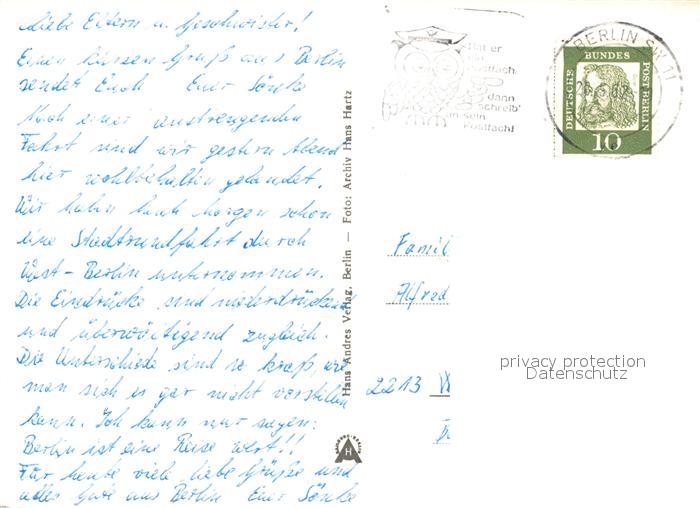 Liebe Eltern u. Geschwister!
Einen kurzen Gruß aus Berlin
sendet Euch Euer Sönke
Nach einer anstrengenden
Fahrt sind wir gestern Abend
hier wohlbehalten gelandet.
Wir haben heute Morgen schon
eine Stadtrundfahrt durch
West-Berlin unternommen.
Die Eindrücke sind niederdrückend
und überwältigend zugleich.
Die Unterschiede sind so kraß, wie
man sich es gar nicht vorstellen
kann. Ich kann nur sagen:
Berlin ist eine Reise wert!!
Für heute viele liebe Grüße und
alles Gute aus Berlin Euer Sönke
Hans Andres Verlag, Berlin — Foto: Archiv Hans Hartz
Hat er
ein
Postfach,
dann
schreib'
an sein
Postfach!
BERLIN SW 11
DEUTSCHE BUNDESPOST BERLIN
10
Famil
Alfred
2213 W
privacy protection
Datenschutz